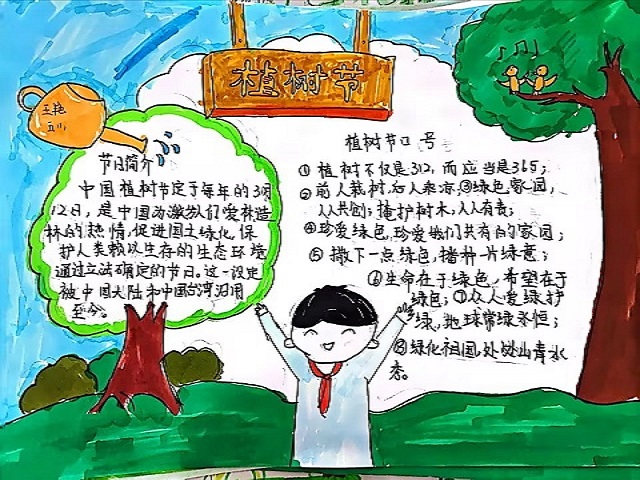 植树节
五(1)
节日简介
中国植树节定于每年的3月
12日，是中国为激发人们爱林造
林的热情，促进国土绿化，保
护人类赖以生存的生态环境
通过立法确定的节日。这一设定
被中国大陆和中国台湾沿用
至今。
植树节口号
①植树不仅是312，而应当是365；
②前人栽树，后人乘凉；③绿色家园，
人人共创；掩护树木，人人有责；
④珍爱绿色，珍爱我们共有的家园；
⑤撒下一点绿色，播种一片绿意；
⑥生命在于绿色，希望在于
绿色；⑦众人爱绿护
绿，地球常绿永恒；
⑧绿化祖国，处处山青水
秀。